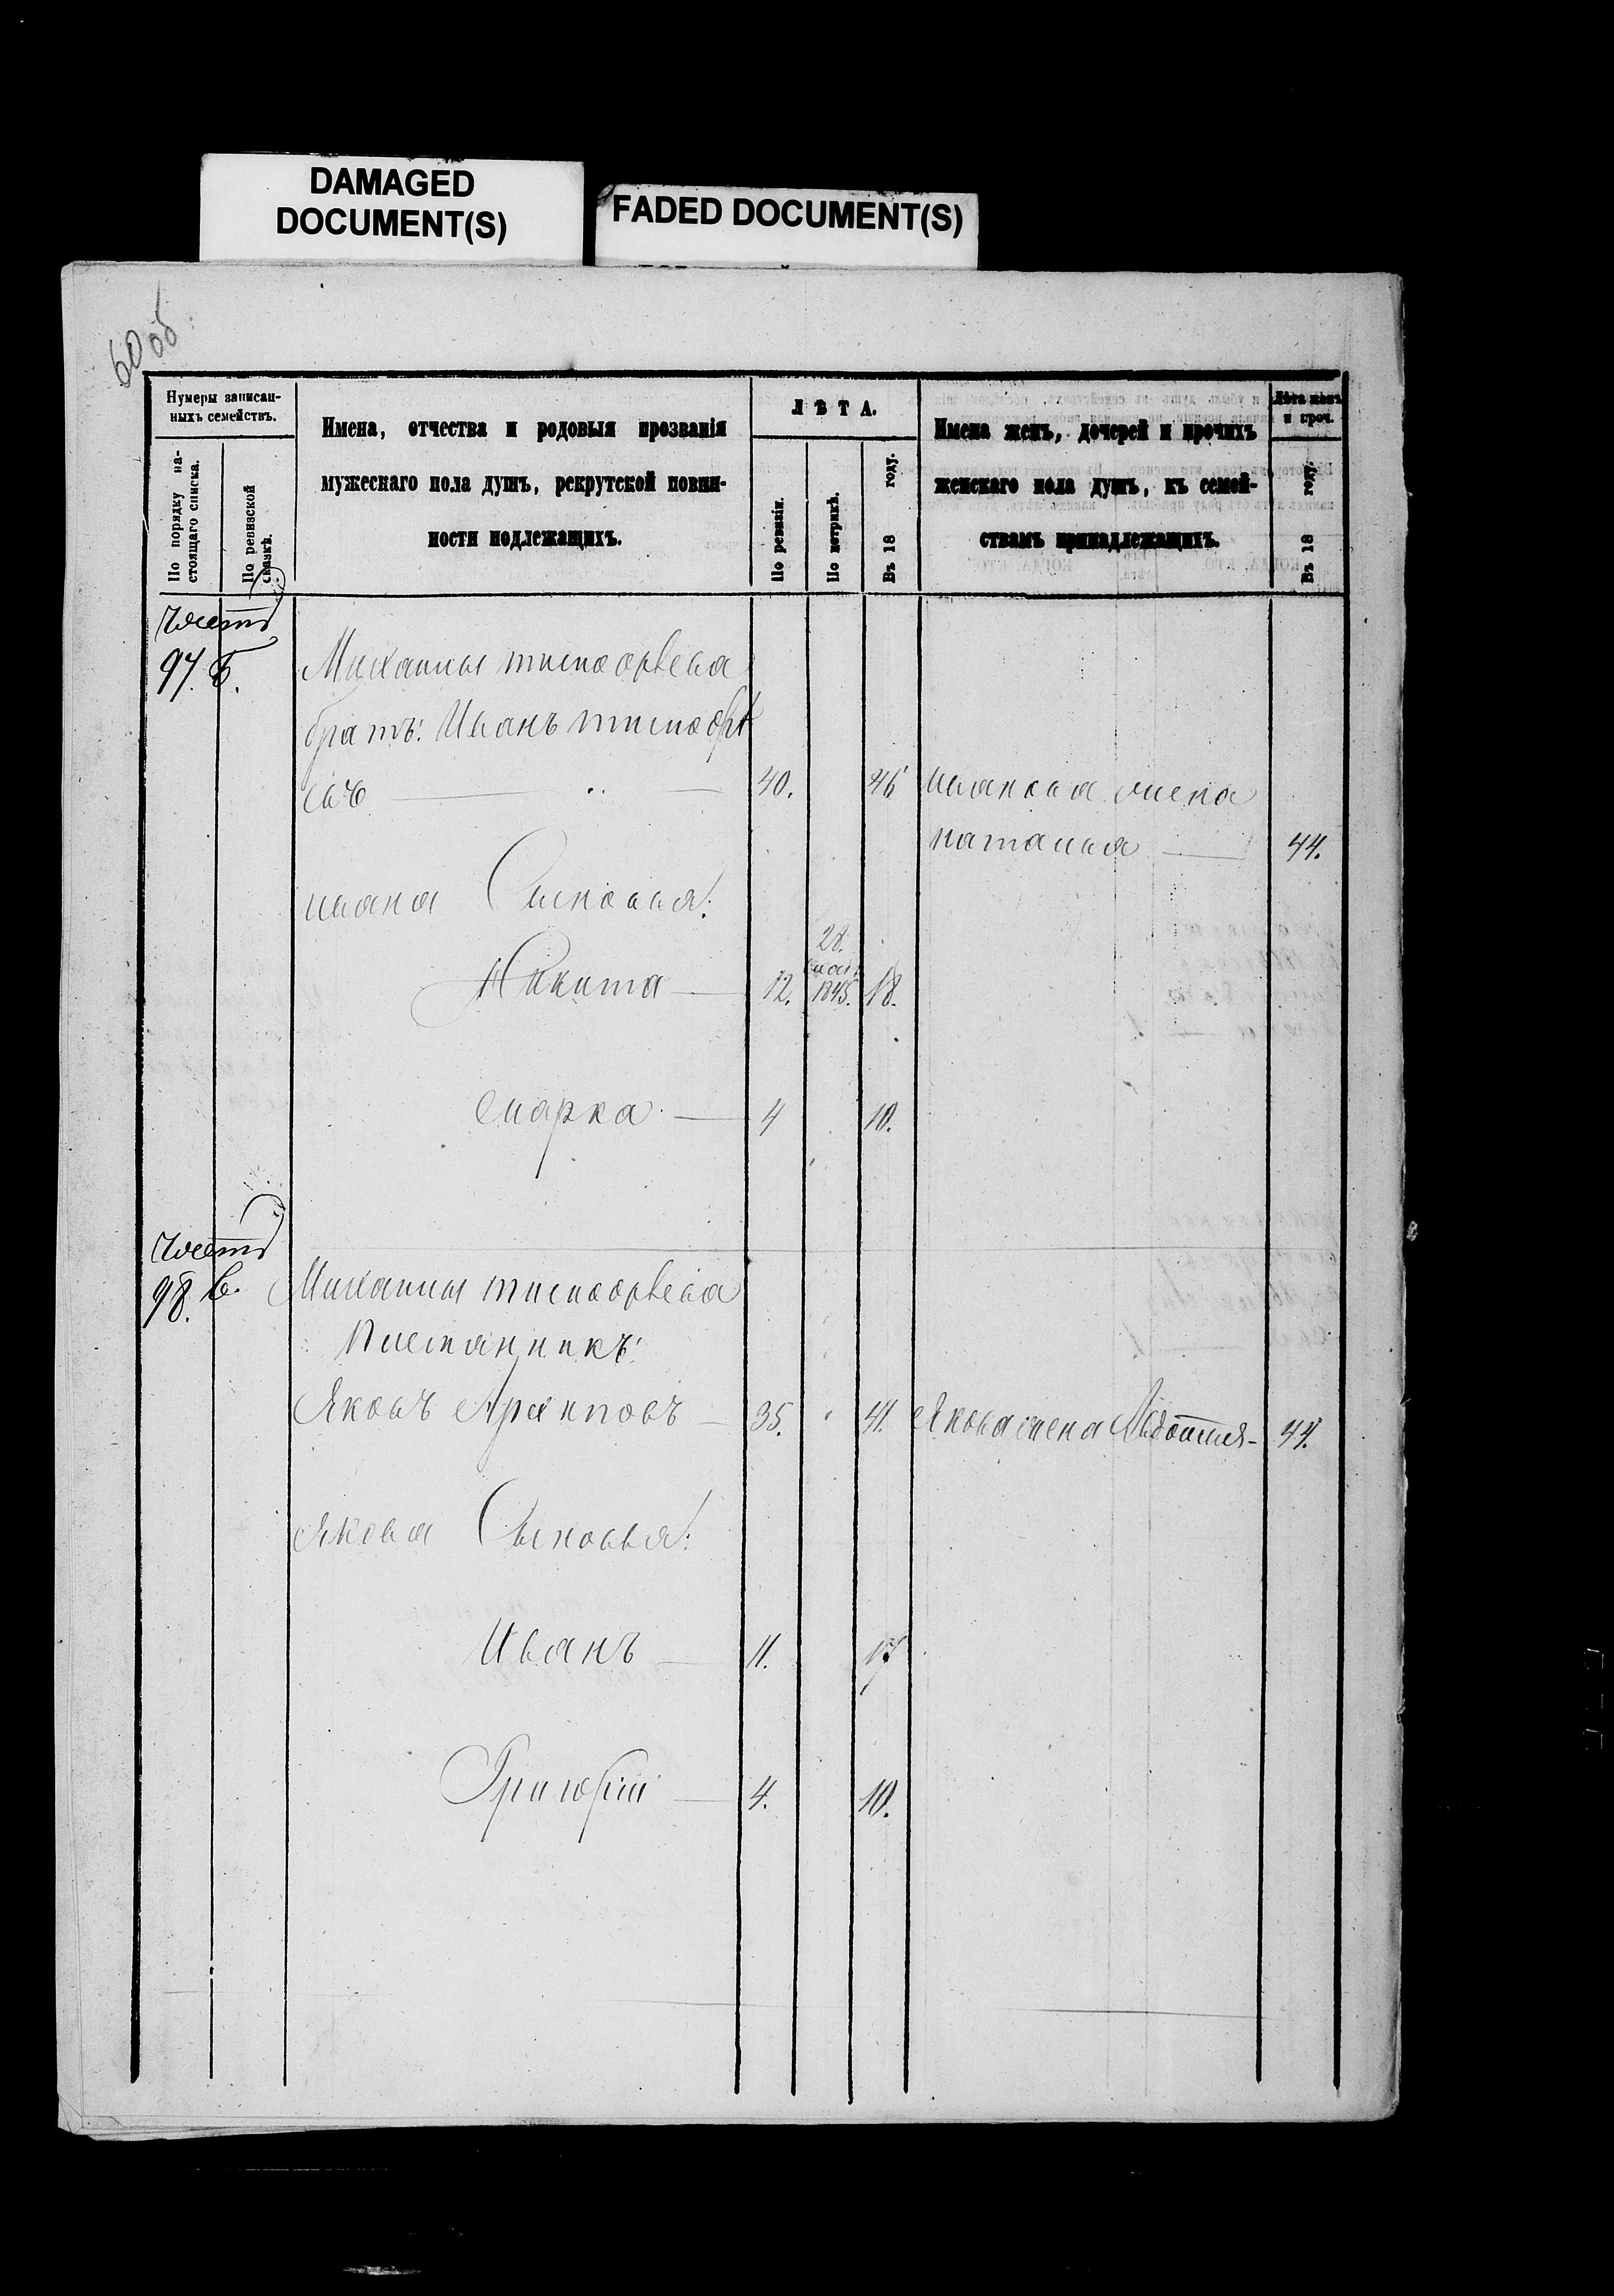 DAMAGED
DOCUMENT(S)
FADED DOCUMENT(S)
60 об
Нумеры записан-
ныхъ семействъ.
По порядку на-
стоящаго списка.
По ревизской
сказкѣ.
Имена, отчества и родовыя прозванія
мужескаго пола душъ, рекрутской повин-
ности подлежащихъ.
ЛѢТА.
По ревизіи.
По метрикѣ.
Въ 18 году.
Имена женъ, дочерей и прочихъ
женскаго пола душъ, къ семей-
ствамъ принадлежащихъ.
Лѣта женъ
и проч.
Въ 18 году.
Часть
97. Б. Михайлы Тимофѣева
братъ: Иванъ Тимофѣ
евъ 40. 46 Иванова жена
Наталья 44.
Ивана Сыновья:
28.
Никита 12. 1845. 18.
Марка 4 10.
Часть
98. В. Михайлы Тимофѣева
Племянникъ:
Яковъ Архиповъ 35. 41. Якова жена Авдотья 44.
Якова Сыновья:
Иванъ 11. 17
Григорій 4. 10.